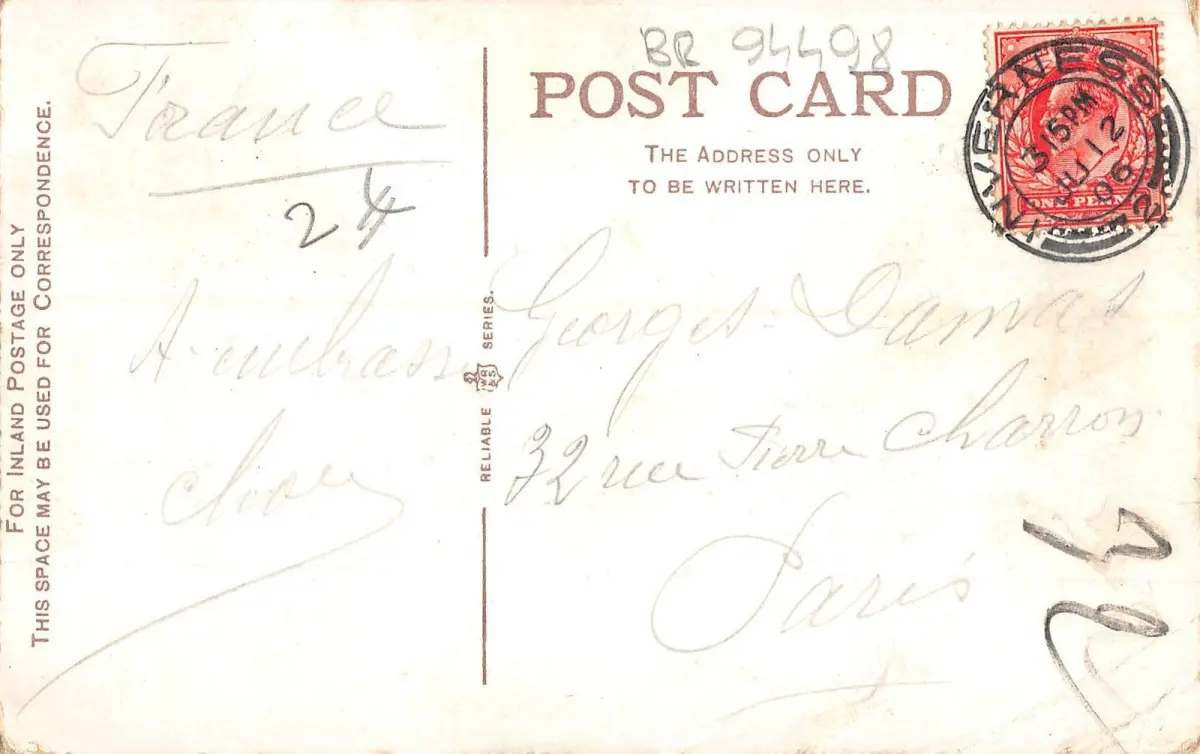 FOR INLAND POSTAGE ONLY
THIS SPACE MAY BE USED FOR CORRESPONDENCE.
France
24
RELIABLE WR&S SERIES.
BR 94498
POST CARD
THE ADDRESS ONLY
TO BE WRITTEN HERE.
INVERNESS
315PM
12
06
ONE PENNY
Georges Damas
32 rue Pierre Charron
Paris